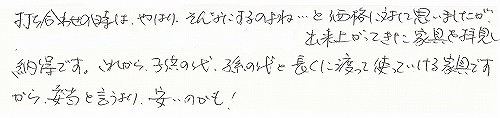 打ち合わせの時は、やはり、そんなにするのよね…と価格に対して思いましたが、
出来上がってきた家具を拝見し
納得です。これから、子供の代、孫の代と長くに渡って使っていける家具です
から、妥当と言うより、安いのかも!